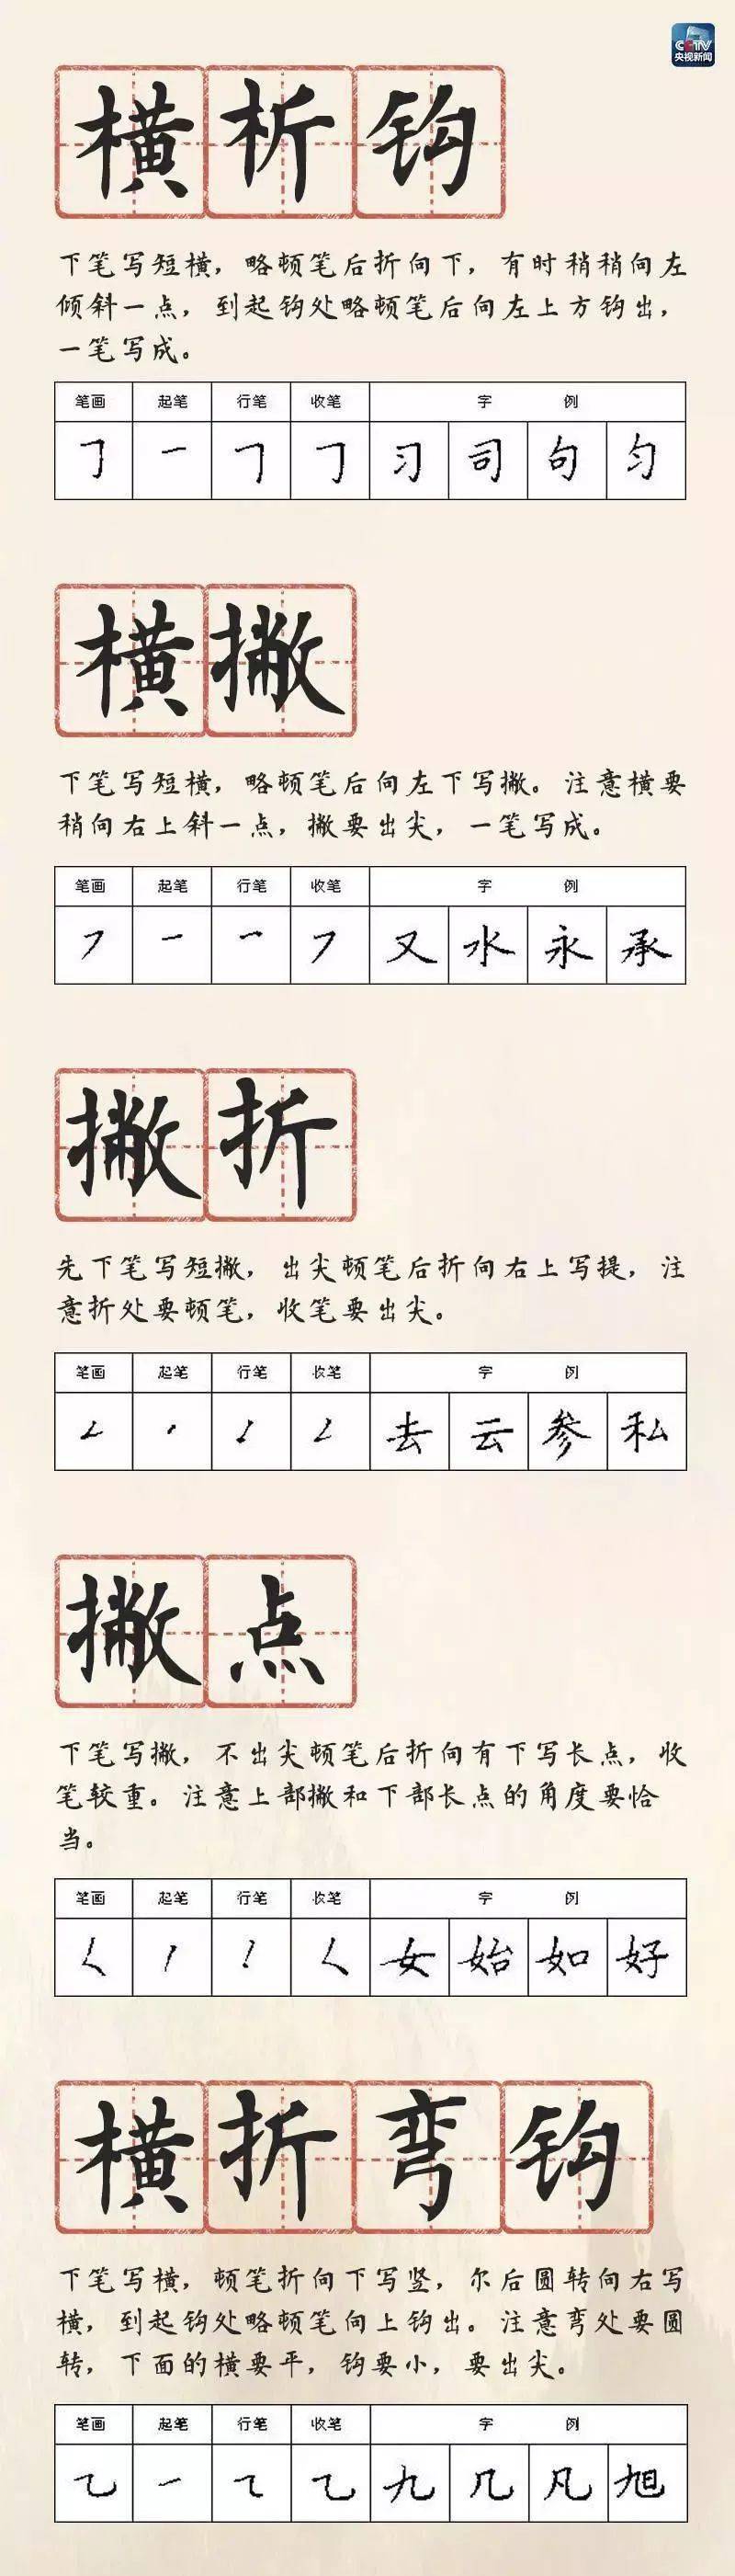 CCTV
央视新闻
横析钩
下笔写短横，略顿笔后折向下，有时稍稍向左
倾斜一点，到起钩处略顿笔后向左上方钩出，
一笔写成。
笔画 起笔 行笔 收笔 字 例
㇆ 一 ㇆ ㇆ 习 司 句 匀
横撇
下笔写短横，略顿笔后向左下写撇。注意横要
稍向右上斜一点，撇要出尖，一笔写成。
笔画 起笔 行笔 收笔 字 例
㇇ 一 ㇇ ㇇ 又 水 永 承
撇折
先下笔写短撇，出尖顿笔后折向右上写提，注
意折处要顿笔，收笔要出尖。
笔画 起笔 行笔 收笔 字 例
㇜ ㇜ ㇜ 去 云 参 私
撇点
下笔写撇，不出尖顿笔后折向有下写长点，收
笔较重。注意上部撇和下部长点的角度要恰
当。
笔画 起笔 行笔 收笔 字 例
㇛ 丿 ㇛ 女 始 如 好
横折弯钩
下笔写横，顿笔折向下写竖，尔后圆转向右写
横，到起钩处略顿笔向上钩出。注意弯处要圆
转，下面的横要平，钩要小，要出尖。
笔画 起笔 行笔 收笔 字 例
㇈ 一 ㇈ ㇈ 九 几 凡 旭